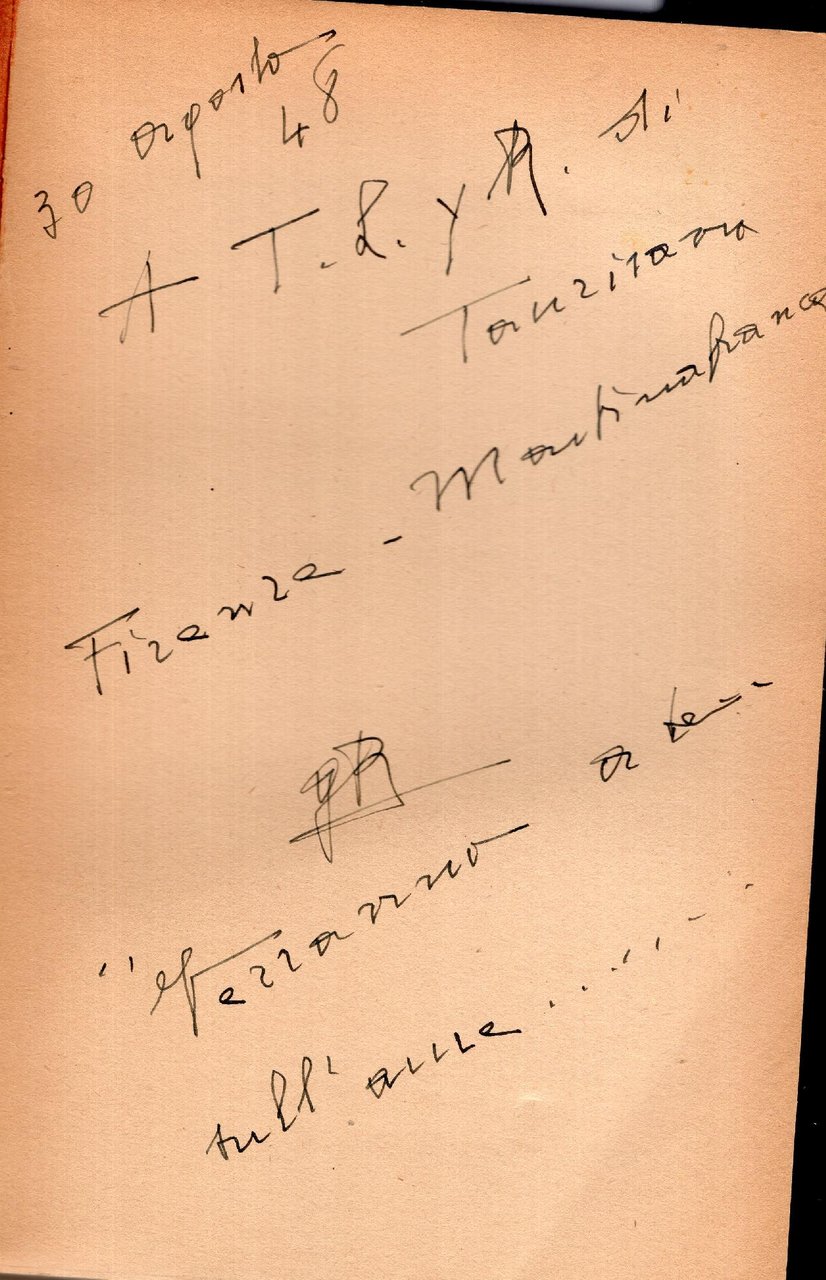 30 agosto
48
A T. L. y R. di
Tanzirano
Firenze - Martinafranca
a te...
"Verranno
sull'aure.....